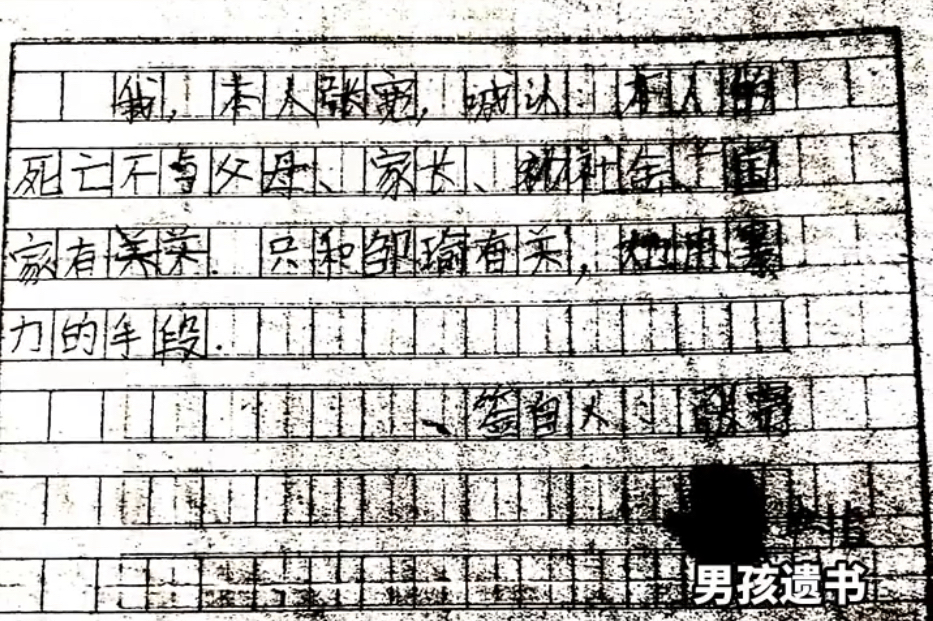 我,本人张宽,喊认 本人的
死亡不与父母、家长、社会、国
家有关系.只和邹瑜有关,她用暴
力的手段.
签自人:张宽
男孩遗书